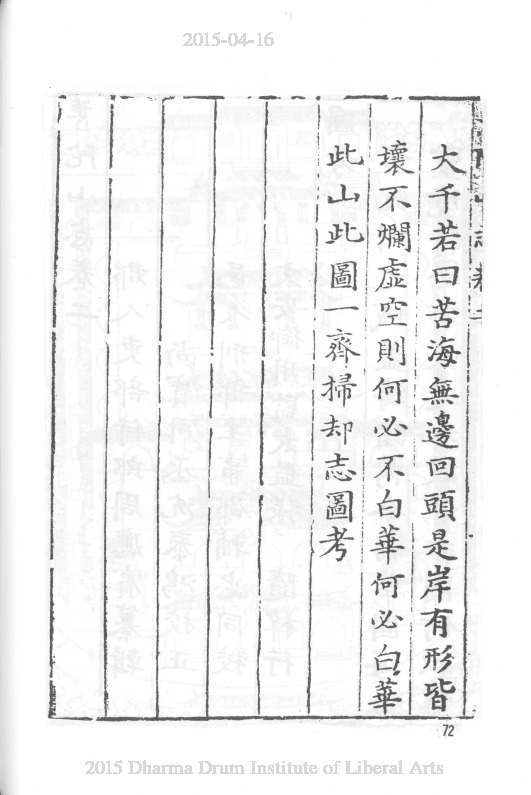 2015-04-16
志卷二
大千若曰苦海無邊回頭是岸有形皆
壞不爛虛空則何必不白華何必白華
此山此圖一齊掃却志圖考
72
2015 Dharma Drum Institute of Liberal Arts